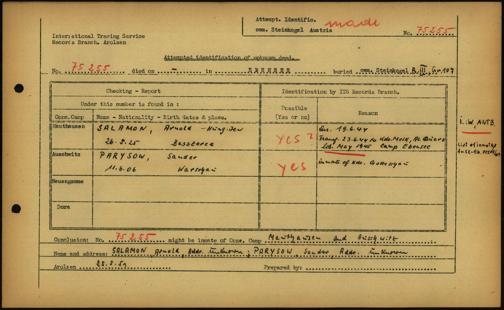 Attempt. Identific. made
cem. Steinkogel Austria
No. 75255
International Tracing Service
Records Branch, Arolsen
Attempted identification of unknown dead.
No. 75255 died on - in XXXXXXX buried cem. Steinkogel
Checking - Report
Identification by ITS Records Branch.
Under this number is found in :
Conc. Camp
Name - Nationality - Birth dates & place.
Possible (Yes or no)
Reason
Mauthausen
SALAMON, Arnold - Hung. Jew
26.8.25
YES?
Arr. 19.6.44
Transf. 23.6.44 to
lib. May 1945 Camp Ebensee
Auschwitz
PARYSOW, Sander
11.4.06 Warschau
YES
Inmate of Kdo.
Neuengamme
Dora
Conclusion: No. 75255 might be inmate of Conc. Camp Mauthausen and Auschwitz
Name and address: SALAMON, Arnold Addr. Unknown; PARYSOW, Sander, Addr. Unknown
Arolsen
Prepared by: